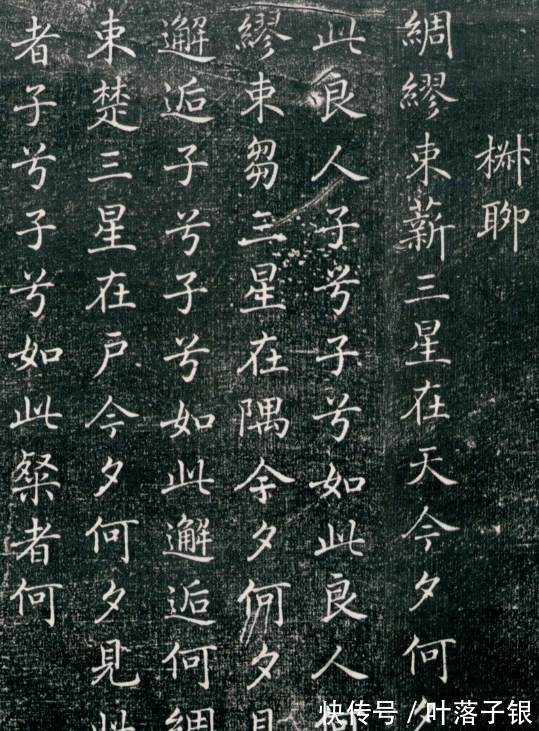 椒聊
綢繆束薪三星在天今夕何夕
此良人子兮子兮如此良人何
繆束芻三星在隅余夕何夕見
邂逅子兮子兮如此邂逅何綢
束楚三星在戶今夕何夕見此
者子兮子兮如此粲者何
快传号/叶落子银